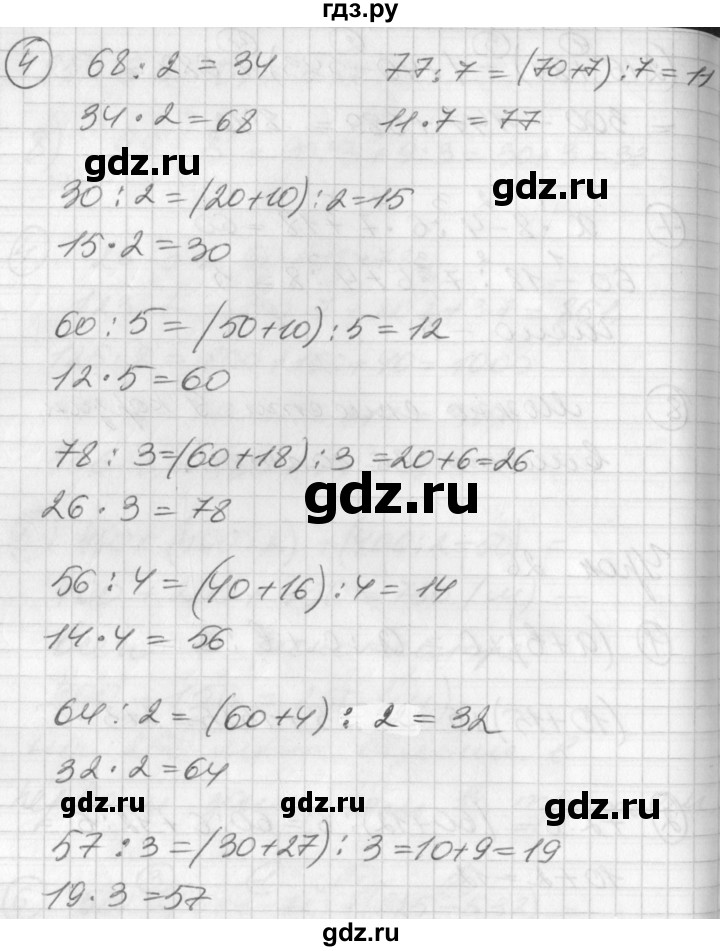 гдз.ру
4 68 : 2 = 34 77 : 7 = (70+7) : 7 = 11
34 · 2 = 68 11 · 7 = 77
gdz.ru gdz.ru
30 : 2 = (20+10) : 2 = 15
15 · 2 = 30
60 : 5 = (50+10) : 5 = 12
12 · 5 = 60
78 : 3 = (60+18) : 3 = 20+6 = 26
gdz.ru
26 · 3 = 78
56 : 4 = (40+16) : 4 = 14
14 · 4 = 56
64 : 2 = (60+4) : 2 = 32
32 · 2 = 64
gdz.ru gdz.ru gdz.ru
57 : 3 = (30+27) : 3 = 10+9 = 19
19 · 3 = 57
gdz.ru